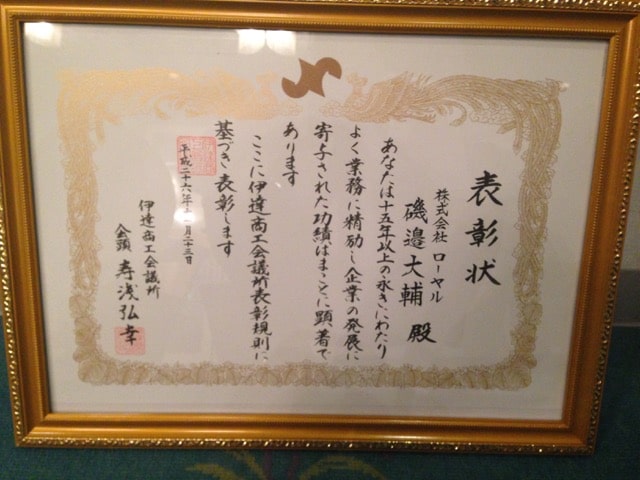 表彰状
株式会社 ローヤル
磯邉大輔 殿
あなたは十五年以上の永きにわたり
よく業務に精励し企業の発展に
寄与された功績はまことに顕著で
あります
ここに伊達商工会議所表彰規則に
基づき表彰します
平成二十六年十一月二十三日
伊達商工会議所
会頭 寿浅弘幸